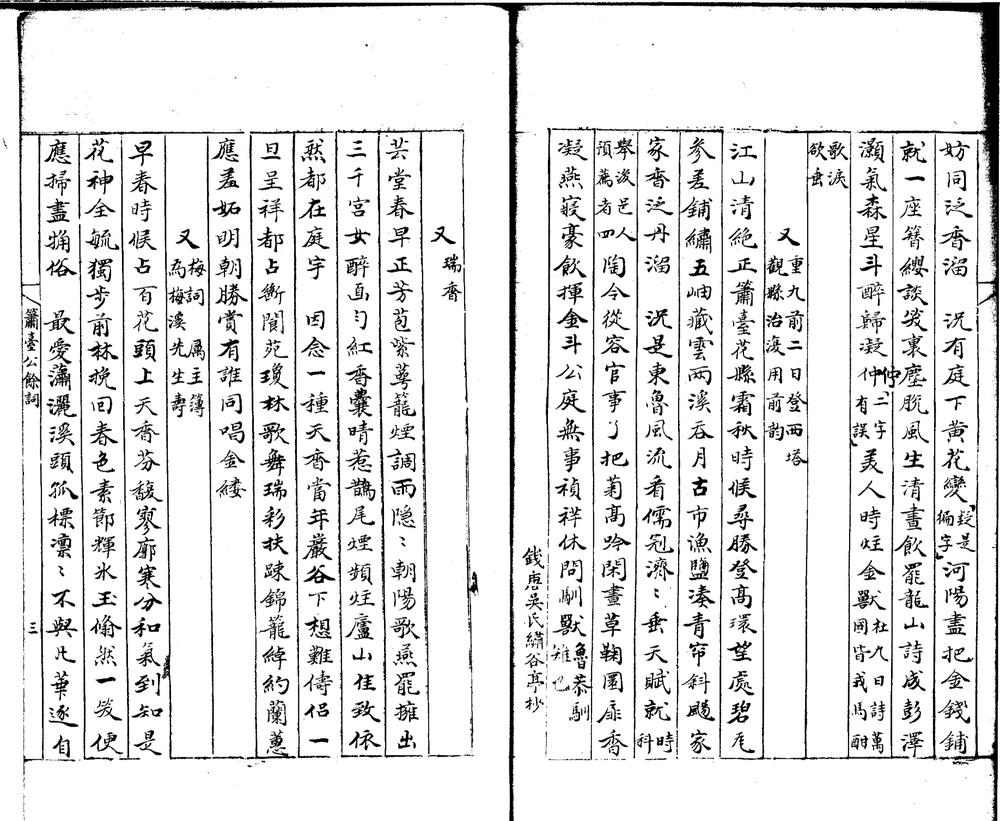 妨同泛香溜　況有庭下黄花變疑是徧字河陽盡把金錢鋪
就一座簪纓談笑裏塵脫風生清晝飲罷龍山詩成彭澤
灝氣森星斗醉歸凝仲二字有誤美人時炷金獸杜九日詩萬國皆戎馬酣
歌淚欲垂
又重九前二日登西塔觀縣治復用前韵
江山清絶正簫臺花縣霜秋時候尋勝登高環望處碧瓦
參差鋪繡五岫藏雲兩溪吞月古市漁鹽湊青帘斜颺家
家香泛丹溜　況是東魯風流看儒冠濟〻垂天賦就時科
舉後邑人預薦者四陶令從容官事了把菊高吟閑晝草鞠園扉香
凝燕寢豪飲揮金斗公庭無事禎祥休問馴獸魯恭馴雉也
錢唐吳氏繡谷亭抄
又瑞香
芸堂春早正芳苞紫萼籠煙調雨隱〻朝陽歌燕罷擁出
三千宮女醉面勻紅香囊晴惹鵲尾煙頻炷廬山佳致依
然都在庭宇　因念一種天香當年巖谷下想難儔侶一
旦呈祥都占斷閬苑瓊林歌舞瑞彩扶踈錦籠綽約蘭蕙
應羞妬明朝勝賞有誰同唱金縷
又梅詞屬主簿為梅溪先生壽
早春時候占百花頭上天香芬馥寥廓寒分和氣到知是
花神全毓獨步前林挽回春色素節輝氷玉翛然一笑便
應掃盡〓俗　最愛瀟灑溪頭孤標凛〻不與凡華逐自
簫臺公餘詞
三